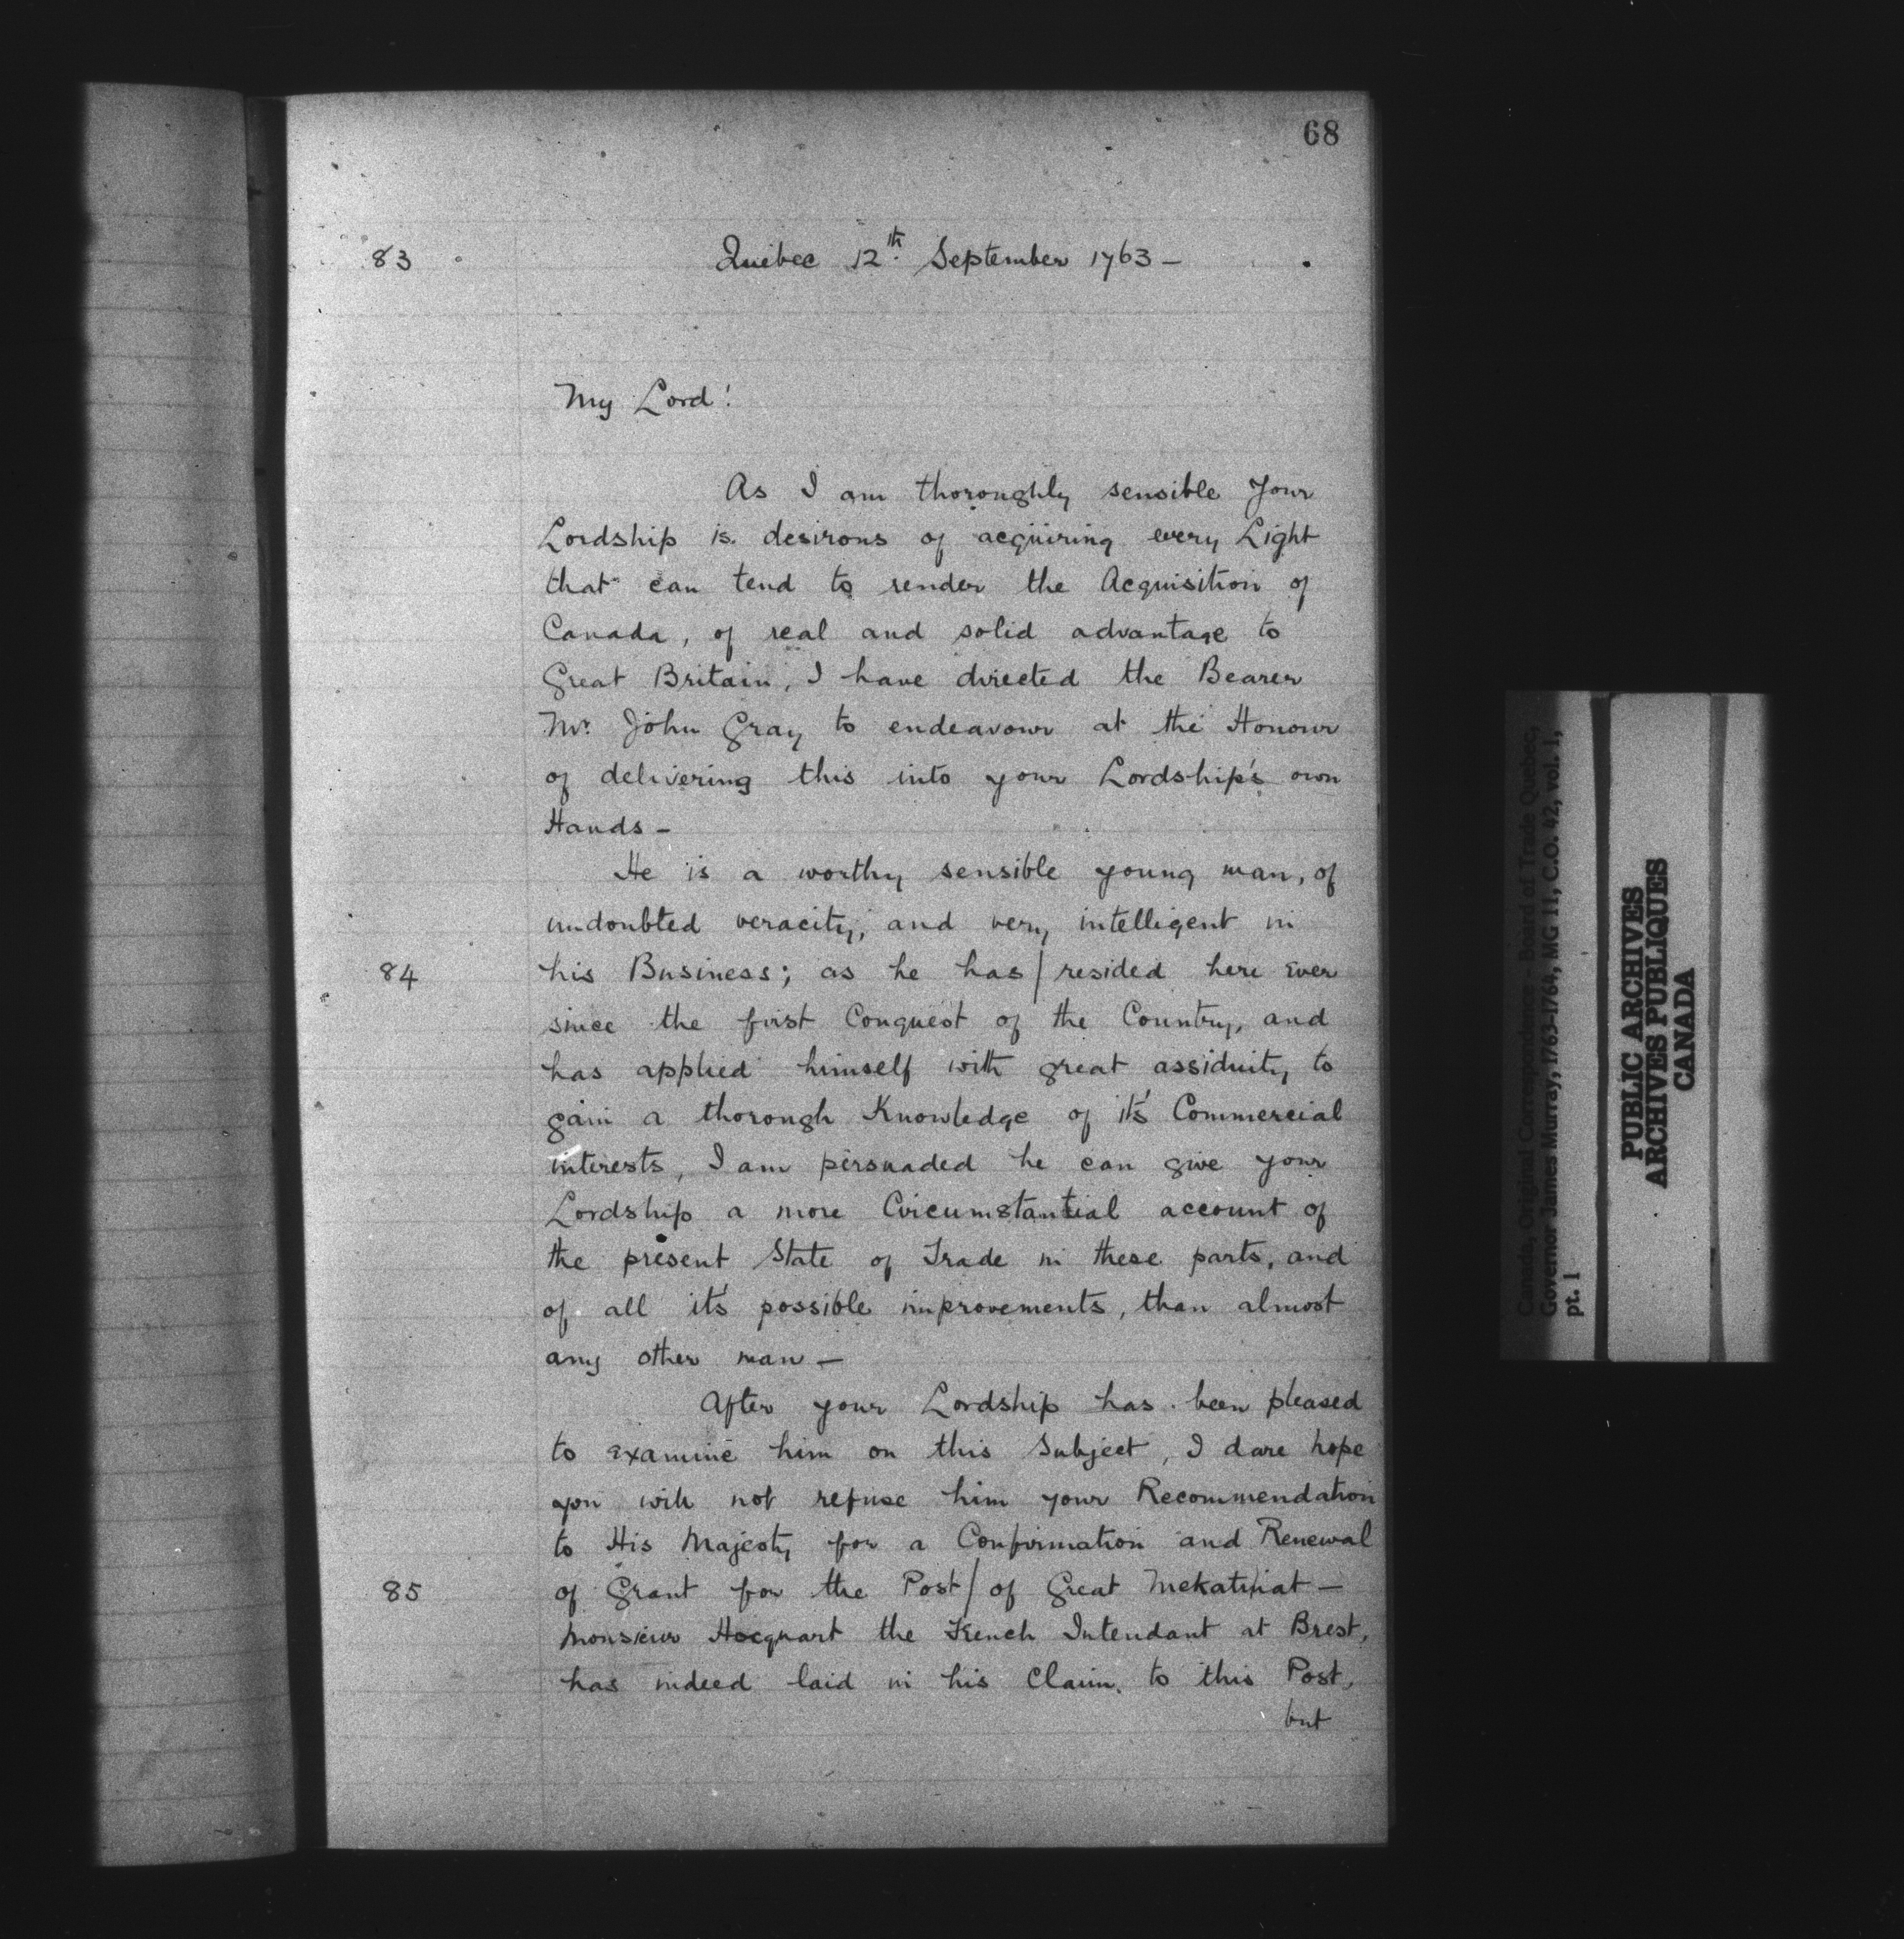 68
83 Quebec 12th September 1763 –
My Lord!
As I am thoroughly sensible Your
Lordship is desirous of acquiring every Light
that can tend to render the Acquisition of
Canada, of real and solid advantage to
Great Britain, I have directed the Bearer
Mr. John Gray to endeavour at the Honour
of delivering this into your Lordship's own
Hands –
He is a worthy sensible young man, of
undoubted veracity, and very intelligent in
84 his Business; as he has / resided here ever
since the first Conquest of the Country, and
has applied himself with great assiduity to
gain a thorough Knowledge of it's Commercial
interests, I am persuaded he can give your
Lordship a more Circumstantial account of
the present State of Trade in these parts, and
of all it's possible improvements, than almost
any other man –
After your Lordship has been pleased
to examine him on this Subject, I dare hope
you will not refuse him your Recommendation
to His Majesty for a Confirmation and Renewal
85 of Grant for the Post / of Great Mekatinat –
Monsieur Hocquart the French Intendant at Brest,
has indeed laid in his Claim to this Post,
but
Canada, Original Correspondence - Board of Trade Quebec,
Governor James Murray, 1763-1764, MG 11, C.O. 42, vol. 1,
pt. 1
PUBLIC ARCHIVES
ARCHIVES PUBLIQUES
CANADA